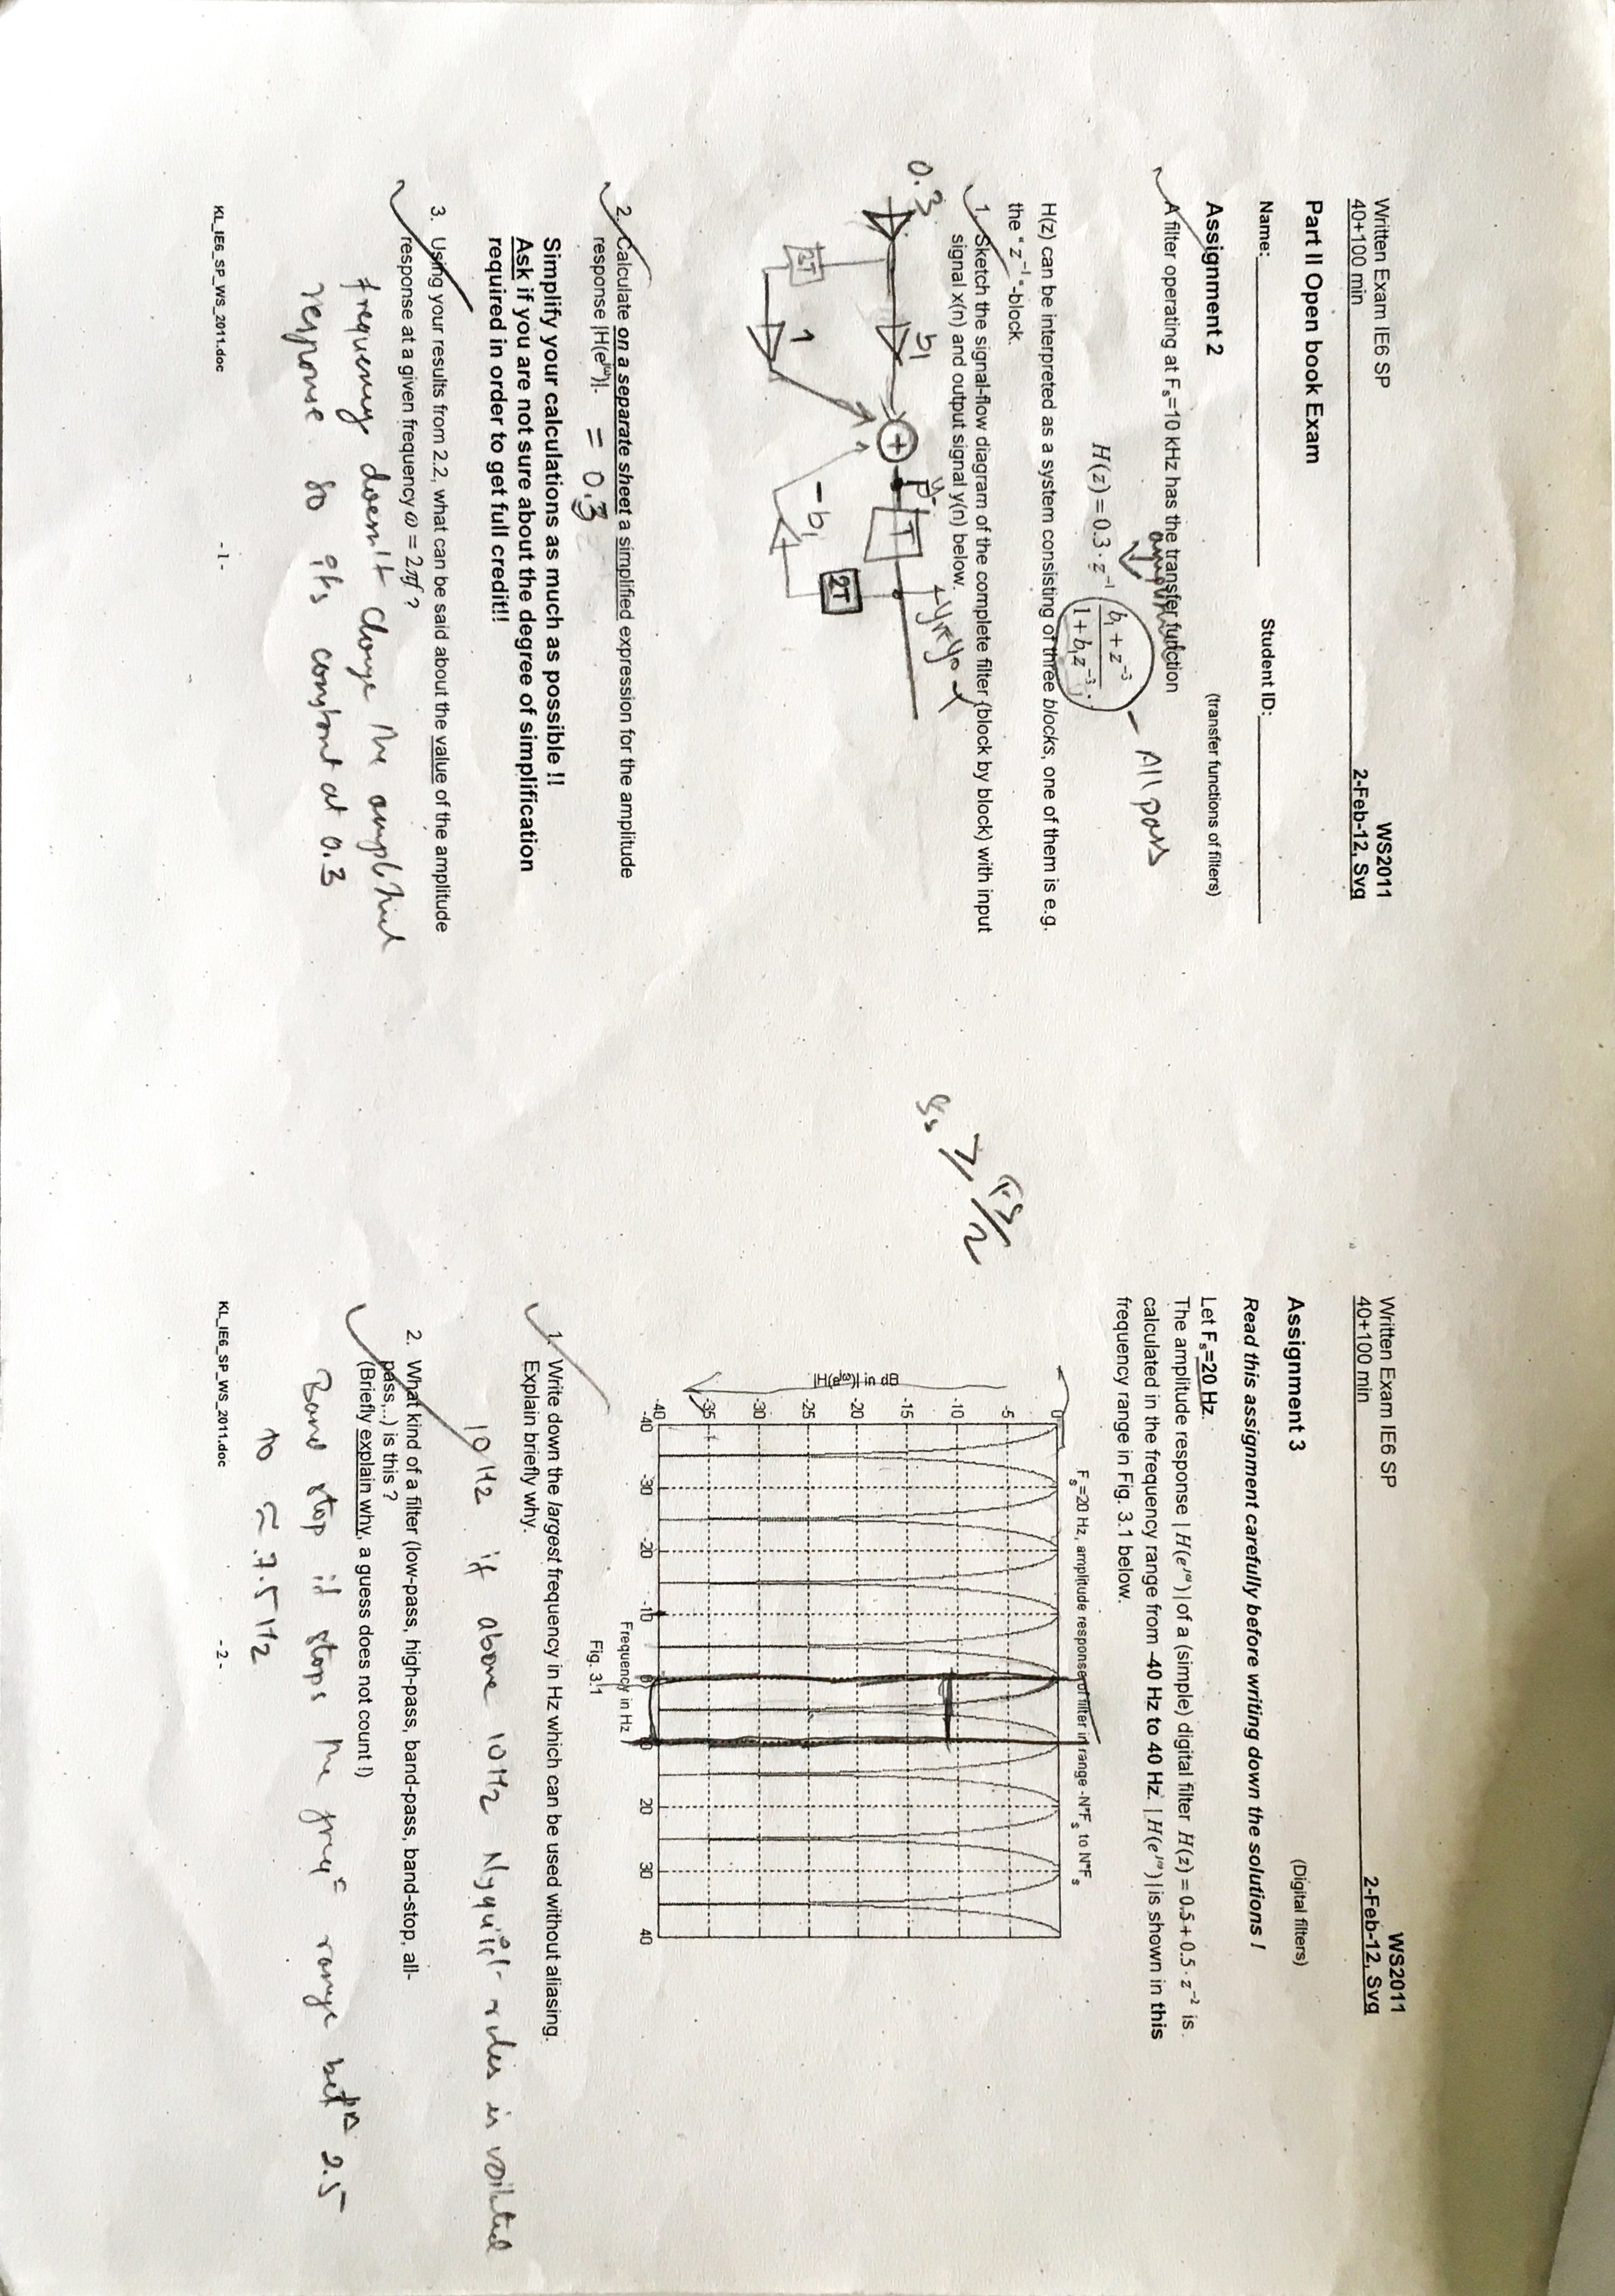 Written Exam IE6 SP WS2011
40+100 min 2-Feb-12, Svg
Part II Open book Exam
Name: Student ID:
Assignment 2 (transfer functions of filters)
A filter operating at Fs=10 kHz has the transfer function
amplitude
All pass
H(z) = 0.3 · z⁻¹ (b₁ + z⁻³)/(1 + b₁z⁻³)
H(z) can be interpreted as a system consisting of three blocks, one of them is e.g.
the "z⁻¹"-block.
1. Sketch the signal-flow diagram of the complete filter (block by block) with input
signal x(n) and output signal y(n) below.
0.3 b₁ + T
2T
3T 1 -b₁
2. Calculate on a separate sheet a simplified expression for the amplitude
response |H(e^jω)|. = 0.3
Simplify your calculations as much as possible !!
Ask if you are not sure about the degree of simplification
required in order to get full credit!!
3. Using your results from 2.2, what can be said about the value of the amplitude
response at a given frequency ω = 2πf ?
frequency doesn't change the amplitude
response so its constant at 0.3
KL_IE6_SP_WS_2011.doc - 1 -
Written Exam IE6 SP WS2011
40+100 min 2-Feb-12, Svg
Assignment 3 (Digital filters)
Read this assignment carefully before writing down the solutions !
Let Fs=20 Hz.
The amplitude response | H(e^jω) | of a (simple) digital filter H(z) = 0.5 + 0.5 · z⁻² is
calculated in the frequency range from -40 Hz to 40 Hz. | H(e^jω) | is shown in this
frequency range in Fig. 3.1 below.
Fs=20 Hz, amplitude response of filter in range -N*Fs to N*Fs
0
-5
-10
-15
-20
-25
-30
-35
-40
|H(e^jω)| in dB
-40 -30 -20 -10 0 10 20 30 40
Frequency in Hz
Fig. 3.1
1. Write down the largest frequency in Hz which can be used without aliasing.
Explain briefly why.
10 Hz if above 10Hz Nyquist rules is voilated
2. What kind of a filter (low-pass, high-pass, band-pass, band-stop, all-
pass,..) is this ?
(Briefly explain why, a guess does not count !)
Band stop it stops the freq range betn 2.5
to ≈ 7.5 Hz
KL_IE6_SP_WS_2011.doc - 2 -